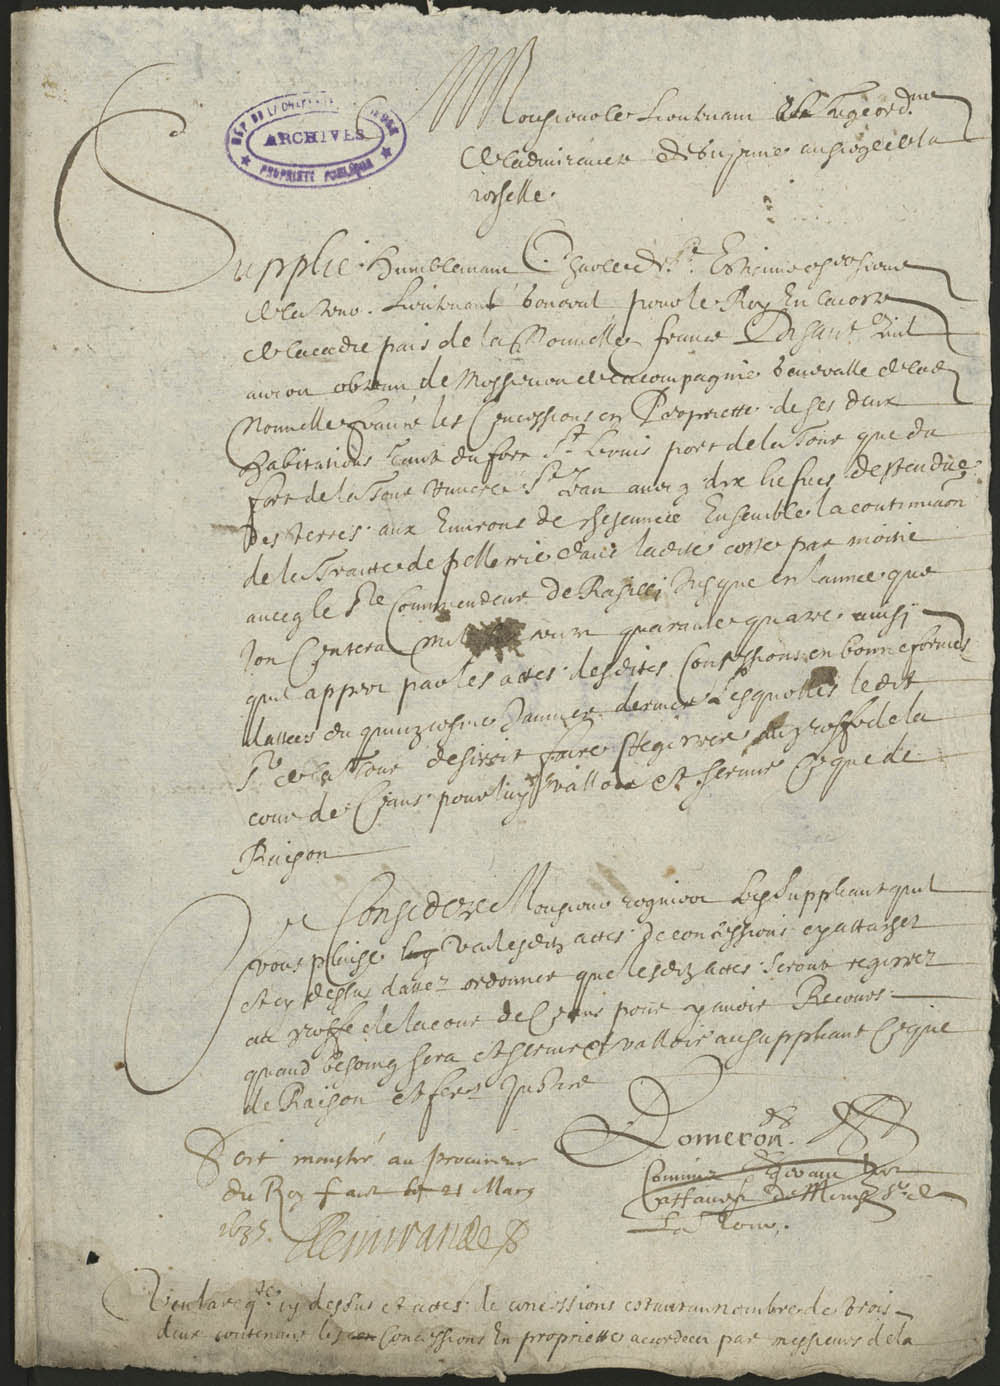 DEP. DE LA CHARENTE
ARCHIVES
PROPRIÉTÉ PUBLIQUE
Monsieur le Lieutenant
de ladmirauté de Guyenne au siege de la
rochelle.
Supplie humblemant Charles de St. Estienne
de la Tour Lieutenant general pour le Roy En la coste
de lacadie païs de la Nouvelle france Disant quil
auroit obtenu de Messieurs de la compagnie generalle de lad
Nouvelle france les Concessions en Propriette de ses deux
habitations tant du fort St Louis port de la Tour que du
fort de la Tour Riviere St Jean avecq dix lieues destendue
des terres aux Environs de chescune Ensemble la continuaon
de la Traitte de pelletrie dans ladite coste par moitié
avecq le Sr Commendeur De Rasilli Jusque en lannee que
lon Contera mil six cent quarante quatre ainsi
que appert par les actes desdites Concessions en bonne forme
dattees du quinziesme Janvier dernier Lesquelles ledit
Sr de la Tour desireroit faire Regitrer au greffe de la
cour de Ceans pour luy valloir et servir Ce que de
Raison
Ce Consideré Monsieur
vous plaise veu lesditz actes de concessions cy attachez
et cy dessus dattez ordonner que lesditz actes seront regitrez
au greffe de la cour de Ceans pour y avoir Recours
quand besoing sera et servir et valloir au suppliant Ce que
de Raison et fere Justice
Domeron.
Comme
La Tour.
Soit monstré au procureur
du Roy fait le 21 Mars
1635.
Veu la reqte cy dessus et actes de concessions estant au nombre de trois
deux contenant les Concessions En propriette accordees par messieurs de la